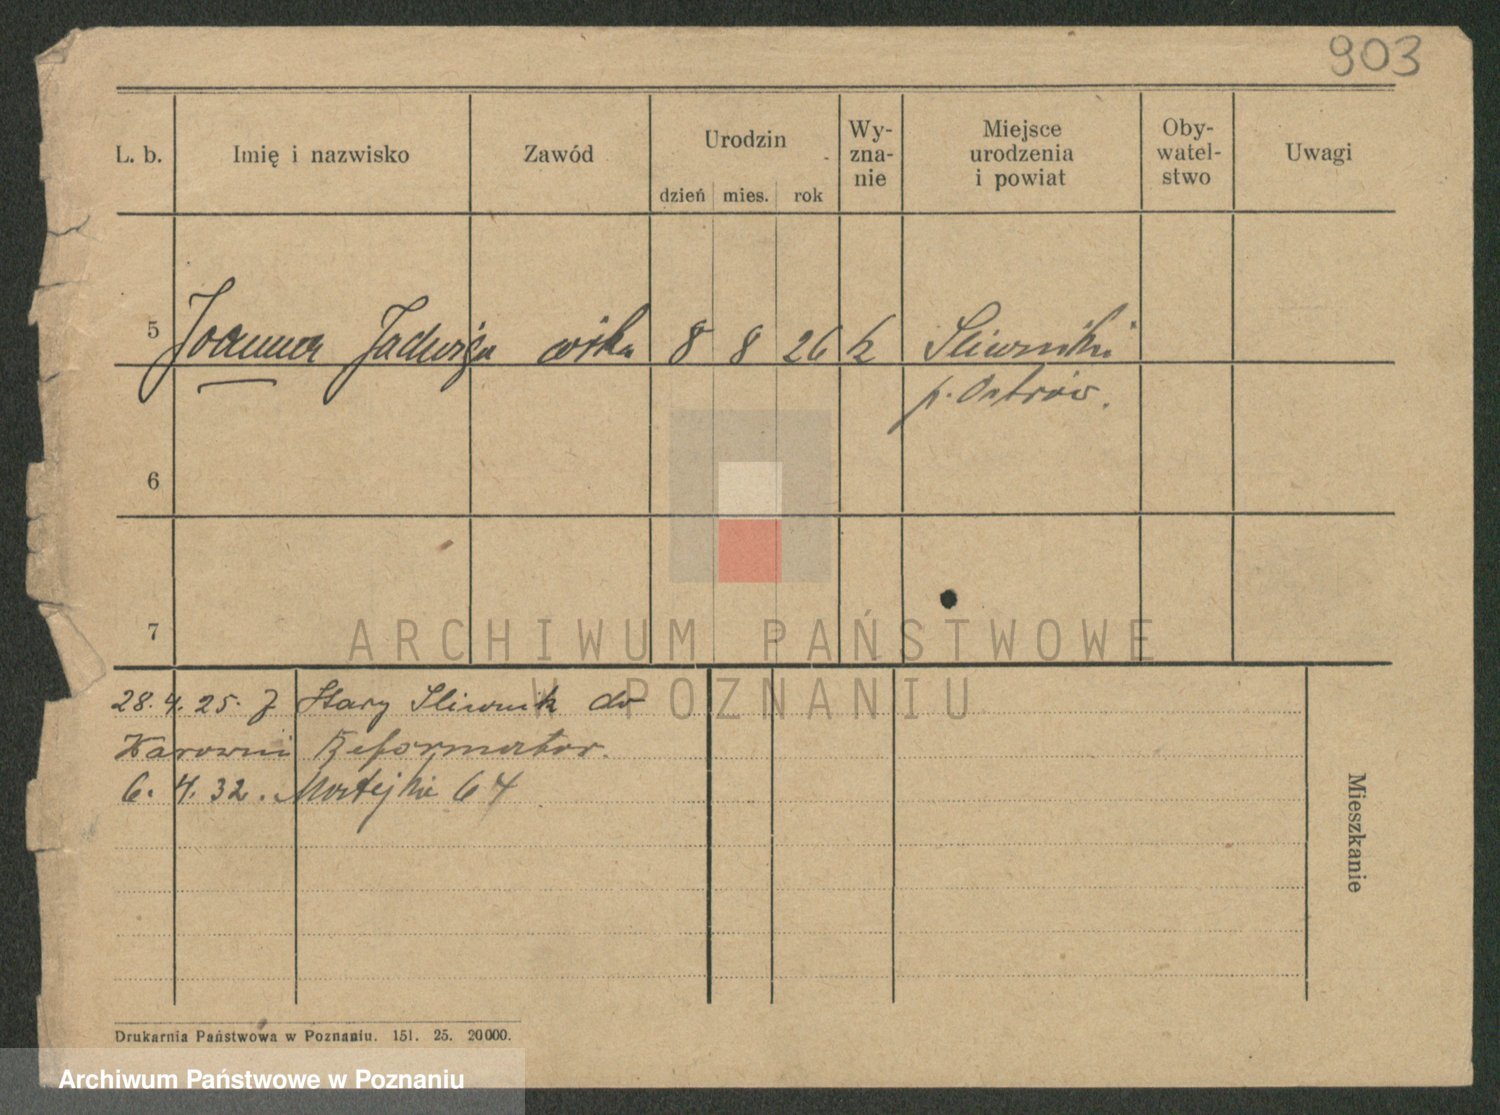 903
L. b. Imię i nazwisko Zawód Urodzin Wy-zna-nie Miejsce urodzenia i powiat Oby-watel-stwo Uwagi
dzień mies. rok
5 Joanna Jadwiga córka 8 8 26 k Śliwniki
p. Ostrów.
6
7
ARCHIWUM PAŃSTWOWE
W POZNANIU
28. 4. 25. Z Stary Śliwnik do
Reformator.
6. 4. 32. Matejki 64
Mieszkanie
Drukarnia Państwowa w Poznaniu. 151. 25. 20000.
Archiwum Państwowe w Poznaniu